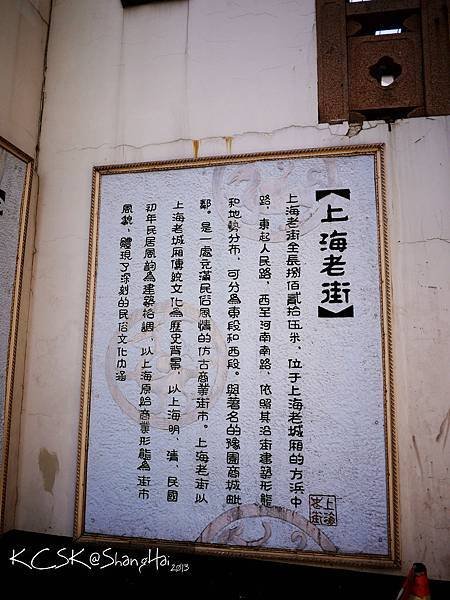 【上海老街】
上海老街全長捌佰貳拾伍米、位于上海老城厢的方浜中
路，東起人民路，西至河南南路，依照其沿街建築形態
和地勢分布，可分為東段和西段。與著名的豫園商城毗
鄰。是一處充滿民俗風情的仿古商業街市。上海老街以
上海老城厢傳統文化為歷史背景，以上海明、清、民國
初年民居風韵為建築格調，以上海原始商業形態為街市
風貌，體現了深刻的民俗文化内涵
上海
老街
KCSK@ShangHai 2013